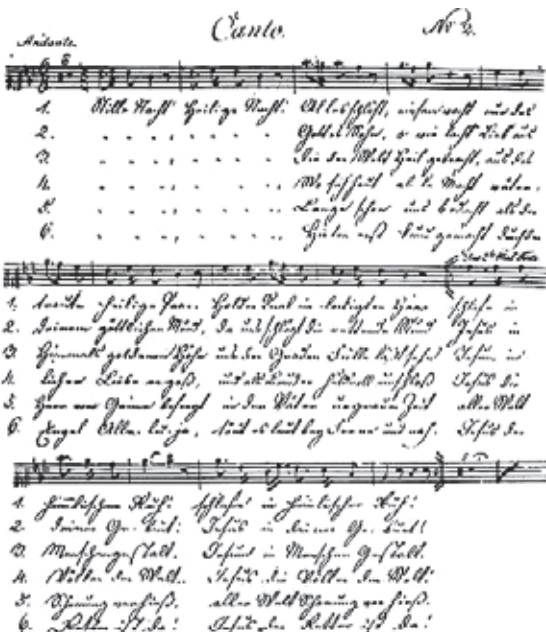 Canto. No 2.
Andante.
1. Stille Nacht! Heilige Nacht! Alles schläft, einsam wacht nur das
2. Gottes Sohn, o wie lacht Lieb aus
3. Die der Welt Heil gebracht, aus des
4. Wo sich heut alle Macht
5. Lange schon uns bedacht als der
6. Hirten erst kund gemacht durch der
1. traute heilige Paar. Holder Knab im lockigten Haar schlafe in
2. deinem göttlichen Mund, da uns schlägt die rettende Stund Jesus in
3. Himmels goldenen Höhn uns der Gnaden Fülle läßt sehn Jesum in
4. licher Liebe ergoß, und als Bruder huldvoll umschloß Jesus die
5. Herr vom Grimme befreyt in der Väter urgrauer Zeit aller Welt
6. Engel Alleluja, tönt es laut bey Ferne und nah. Jesus der
1. himmlischer Ruh! schlafe in himmlischer Ruh!
2. deiner Geburt! Jesus in deiner Geburt!
3. Menschengestalt. Jesum in Menschengestalt.
4. Völker der Welt. Jesus die Völker der Welt!
5. Schonung verhieß. aller Welt Schonung verhieß.
6. Retter ist da! Jesus der Retter ist da!